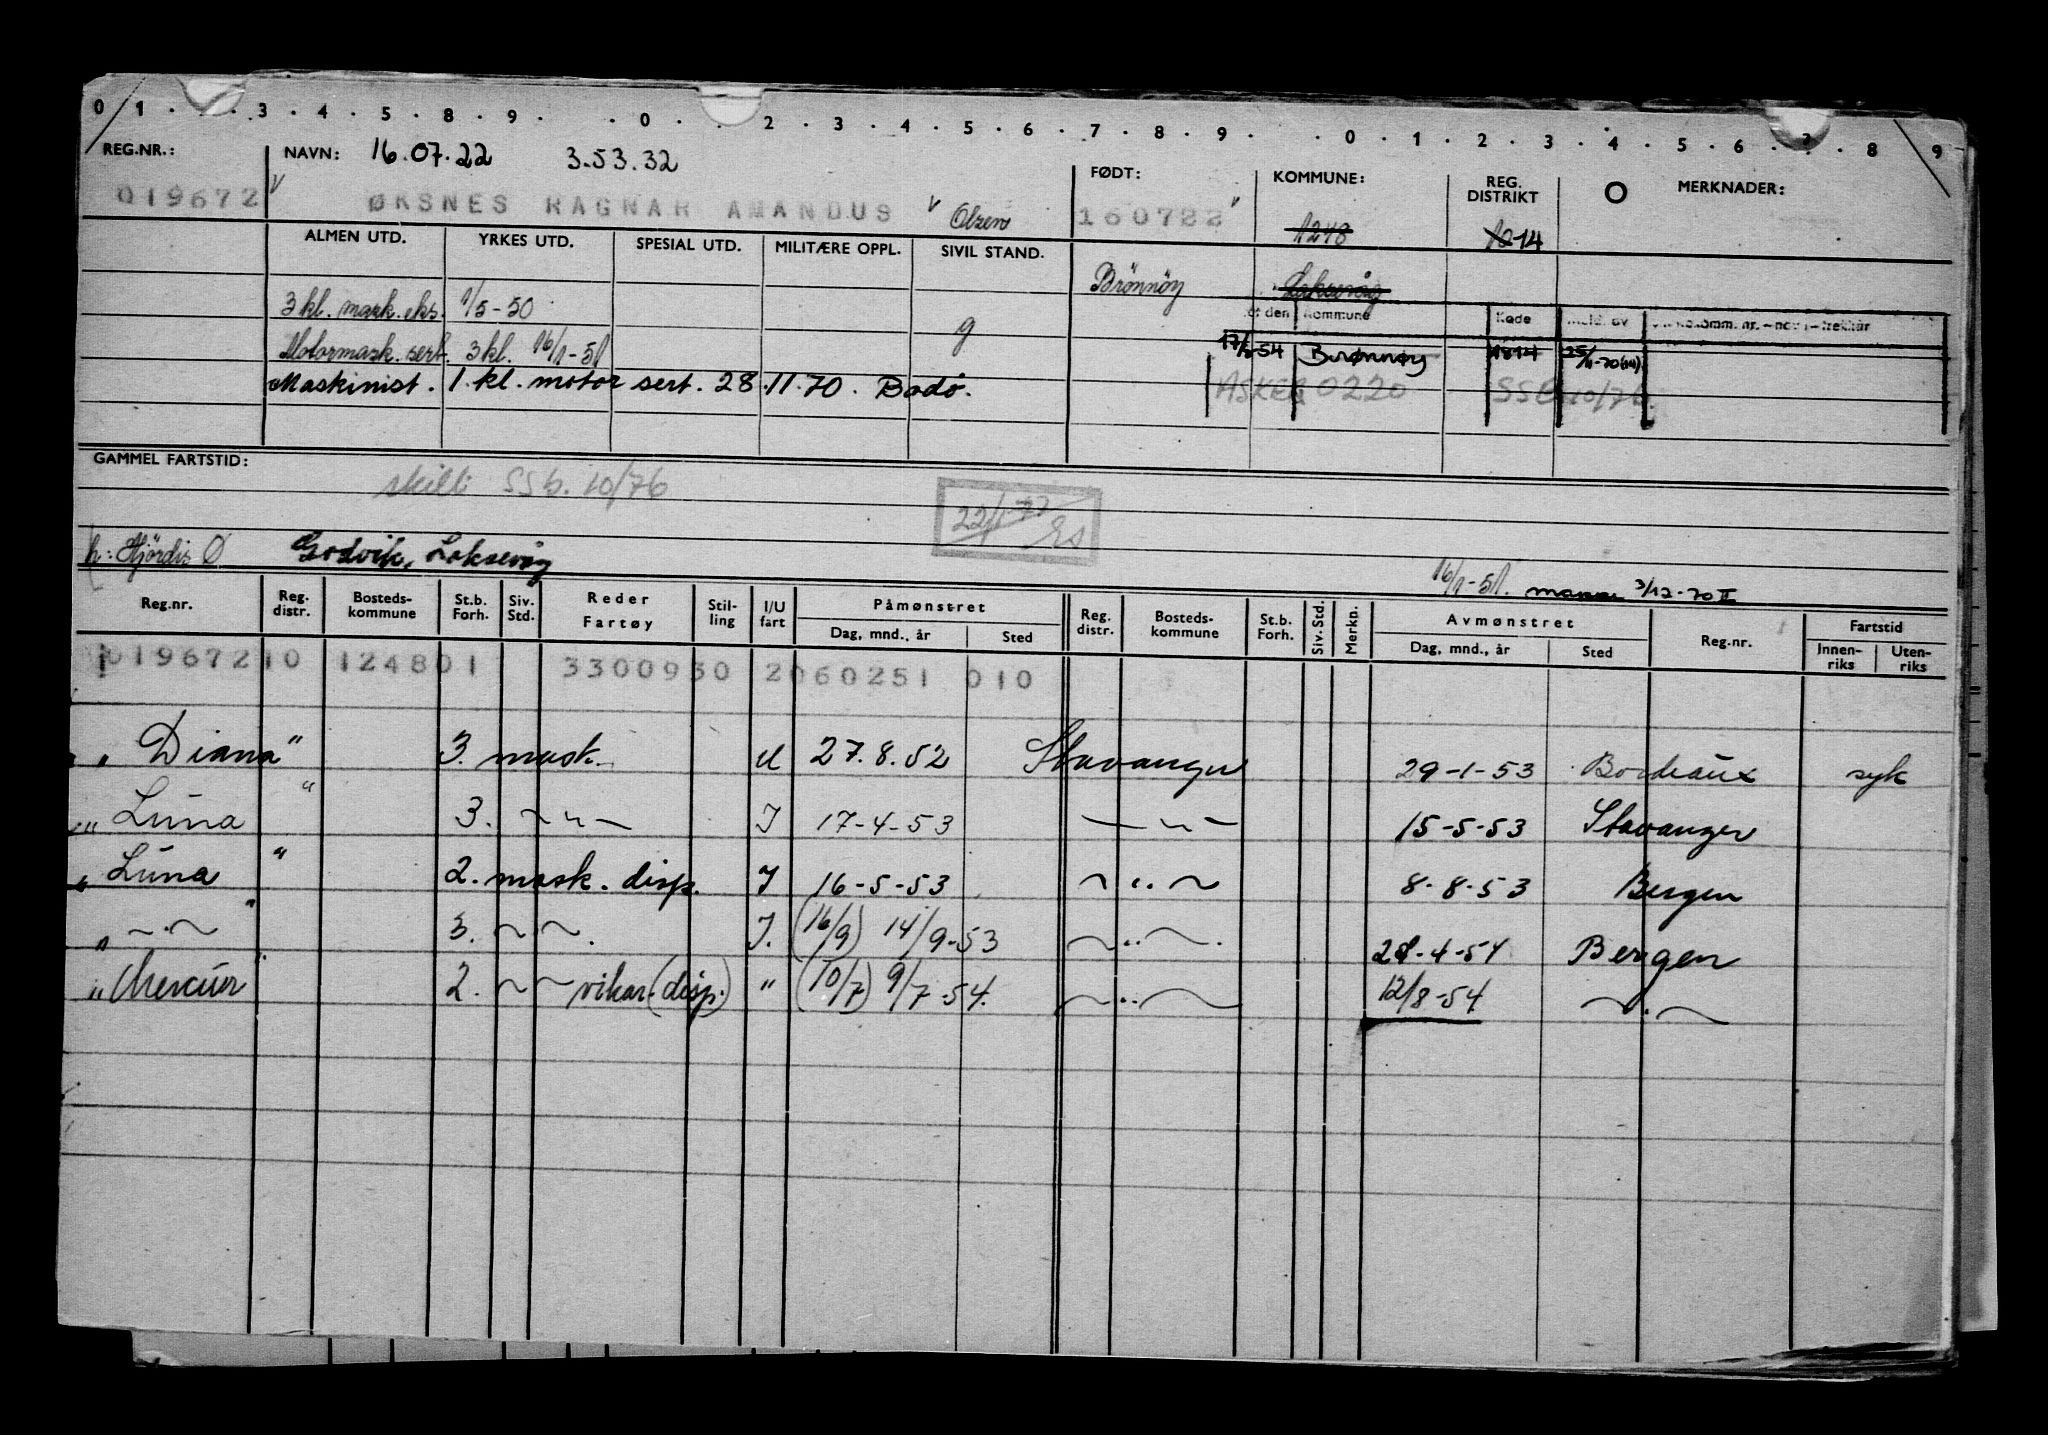 0 1 . . 3 . 4 . 5 . 8 . 9 . . 0 . . 2 . 3 . 4 . 5 . 6 . 7 . 8 . 9 . . 0 . 1 . 2 . 3 . 4 . 5 . 6 . 7 . 8 . 9
REG.NR.: NAVN: 16.07.22 3.53.32 FØDT: KOMMUNE: REG. DISTRIKT O MERKNADER:
019672 ØKSNES RAGNAR AMANDUS Olsen 160722 1248 10 14
ALMEN UTD. YRKES UTD. SPESIAL UTD. MILITÆRE OPPL. SIVIL STAND.
Brönnöy Laksevåg
3 kl. mask. eks. 1/5-50 g
den Kommune Kode Meld. av
Motormask. sert. 3 kl. 16/1-51 17/ -54 Brønnøy 1814 25/11-70
Maskinist. 1. kl. motor sert. 28.11.70. Bodö. ASKER 0220 SSB 10/76
GAMMEL FARTSTID:
skilt SSb. 10/76
22/1-77 Es
h: Hjördis Ø Godvik, Laksevåg
16/1-51. 3/12-70 II
Reg.nr. Reg. distr. Bosteds- kommune St.b. Forh. Siv. Std. Reder Fartøy Stil- ling I/U fart Påmønstret Dag, mnd., år Sted Reg. distr. Bosteds- kommune St.b. Forh. Siv. Std. Merkn. Avmønstret Dag, mnd., år Sted Reg.nr. Fartstid Innen- riks Uten- riks
01967210 124801 3300930 2060251 010
„ Diana " 3. mask. U 27.8.52 Stavanger 29-1-53 Bordeaux syk
„ Luna " 3. ~ " ~ I 17-4-53 — " — 15-5-53 Stavanger
„ Luna " 2. mask. disp. I 16-5-53 ~ " ~ 8-8-53 Bergen
„ ~ " ~ " 3. ~ ~. I. (16/9) 14/9-53 ~ " ~. 28-4-54 Bergen
„ Mercur " 2. ~ ~ vikar. (disp.) " (10/7) 9/7-54. ~ " ~ 12/8-54 ~ " ~